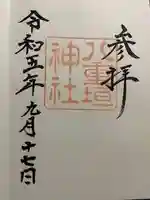 参拝
八重垣
神社
令和五年九月十七日